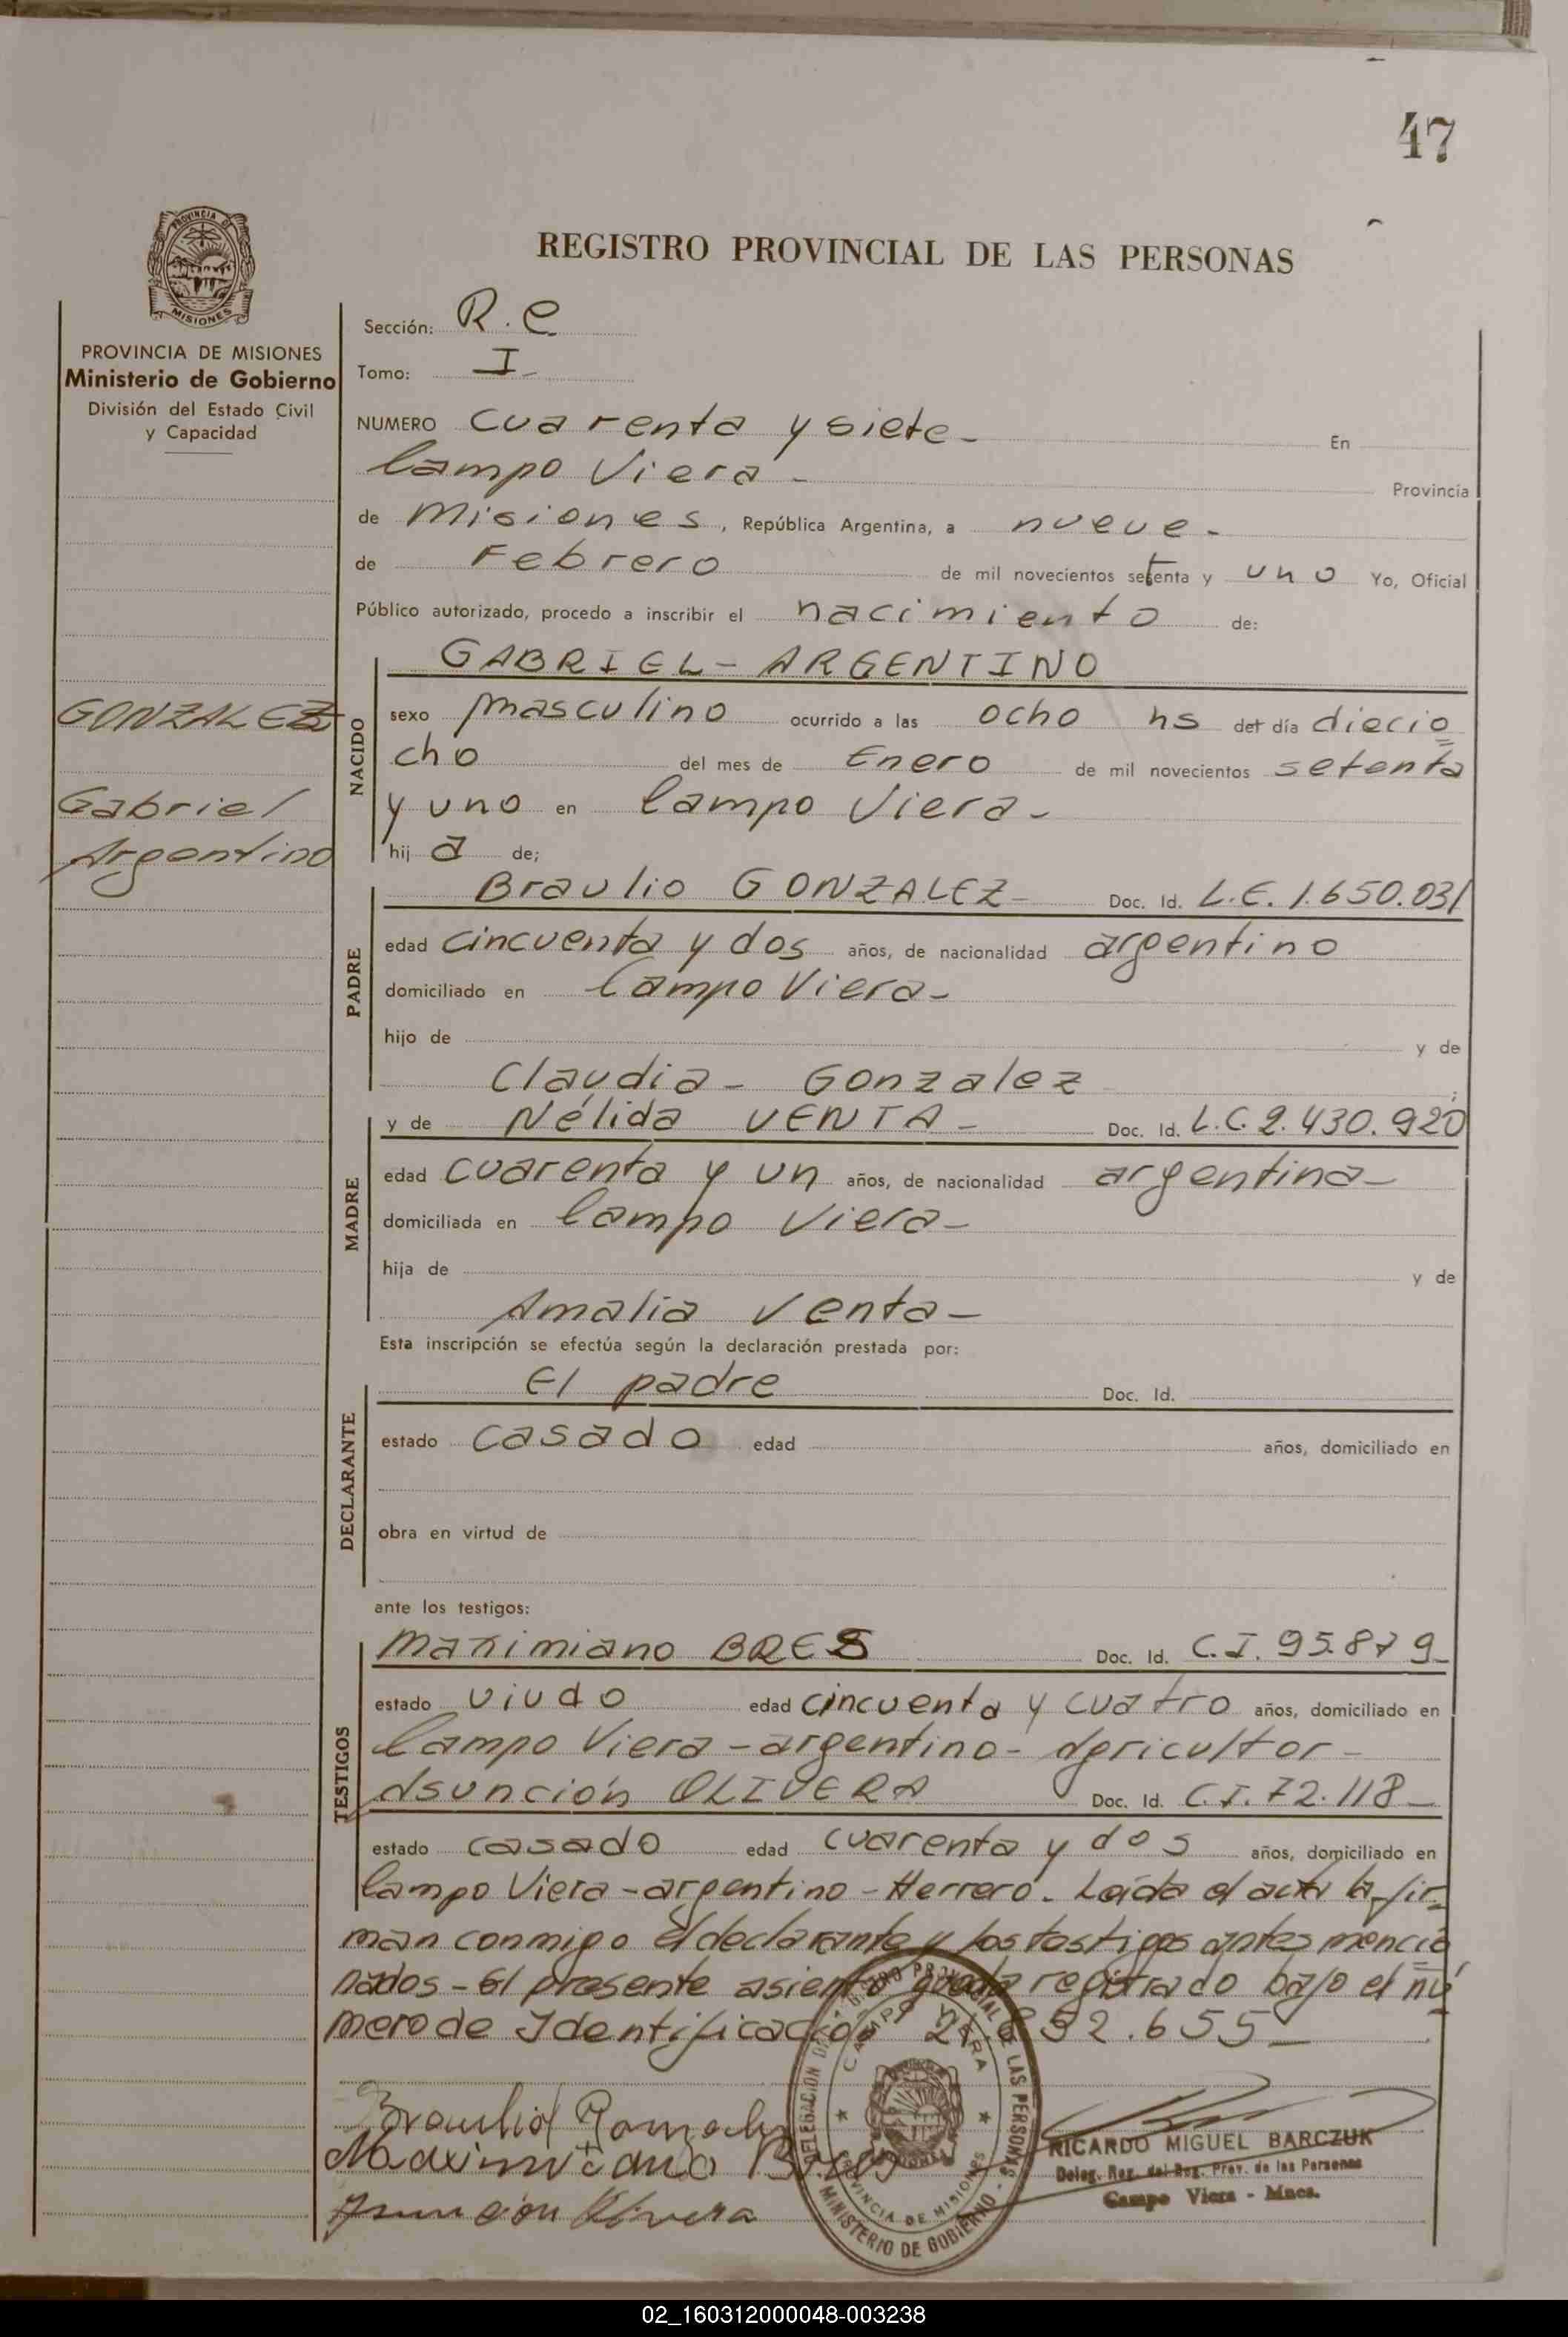 47
REGISTRO PROVINCIAL DE LAS PERSONAS
PROVINCIA DE MISIONES
Ministerio de Gobierno
División del Estado Civil
y Capacidad
GONZALEZ
Gabriel
Argentino
Sección: R.C
Tomo: I-
NUMERO cuarenta y siete- En
Campo Viera - Provincia
de Misiones, República Argentina, a nueve-
de Febrero de mil novecientos setenta y uno Yo, Oficial
Público autorizado, procedo a inscribir el nacimiento de:
NACIDO
GABRIEL- ARGENTINO
sexo masculino ocurrido a las ocho hs del día diecio
cho del mes de Enero de mil novecientos setenta
y uno en Campo Viera-
hij a de;
PADRE
Braulio GONZALEZ- Doc. Id. L.E. 1.650.031
edad cincuenta y dos años, de nacionalidad argentino
domiciliado en Campo Viera-
hijo de y de
Claudia- Gonzalez ;
MADRE
y de Nélida VENTA- Doc. Id. L.C. 2.430.920
edad cuarenta y un años, de nacionalidad argentina-
domiciliada en Campo Viera-
hija de y de
Amalia Venta-
Esta inscripción se efectúa según la declaración prestada por:
DECLARANTE
El padre Doc. Id.
estado casado edad años, domiciliado en
obra en virtud de
ante los testigos:
TESTIGOS
Maximiano BRES Doc. Id. C.I. 95.879-
estado viudo edad cincuenta y cuatro años, domiciliado en
Campo Viera-argentino-Agricultor-
Asunción OLIVERA Doc. Id. C.I. 72.118-
estado casado edad cuarenta y dos años, domiciliado en
Campo Viera-argentino-Herrero. Leída el acta la fir
man conmigo el declarante y los testigos antes mencio
nados-El presente asiento queda registrado bajo el nú
mero de Identificación .655-
Braulio Gonzalez
Maximiano Bres
Asunción Olivera
DELEGACION DEL REGISTRO PROVINCIAL DE LAS PERSONAS
CAMPO VIERA
PROVINCIA DE MISIONES
MINISTERIO DE GOBIERNO
RICARDO MIGUEL BARCZUK
Deleg. Reg. del Reg. Prov. de las Personas
Campo Viera - Mnes.
02_160312000048-003238